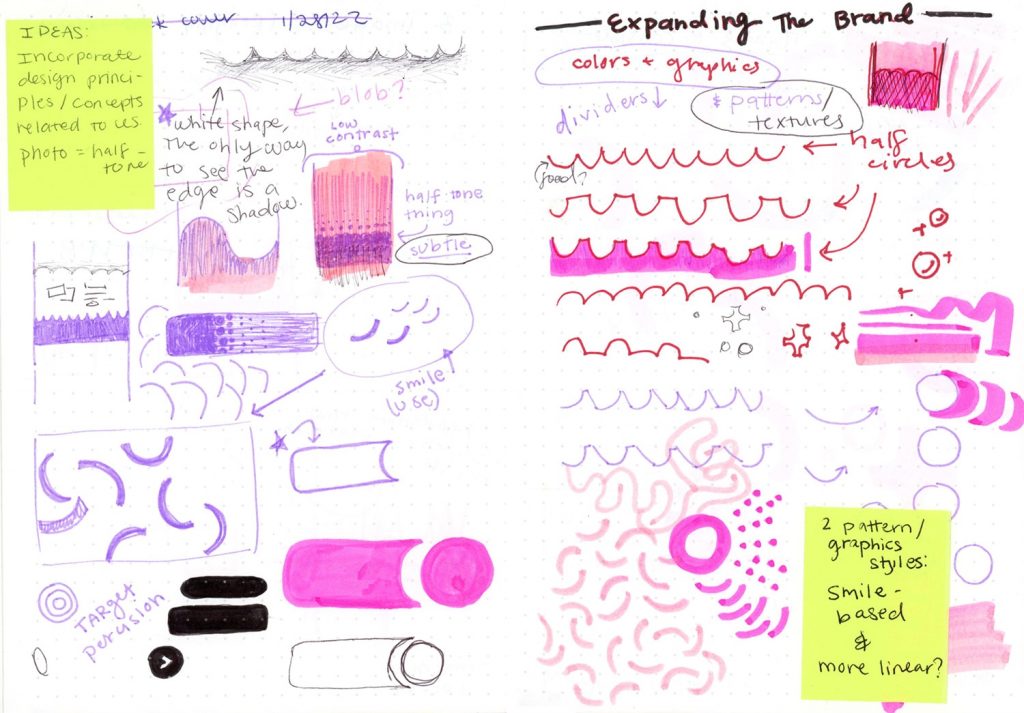 * cover
1/28/22
IDEAS:
Incorporate
design princi-
ples/concepts
related to us.
photo = half-
tone
blob?
white shape,
The only way
to see the
edge is a
shadow.
LOW
contrast
half tone
thing
subtle
smile
(use)
TARGET
Expanding The Brand
colors + graphics
dividers ↓
& patterns/
textures
half
circles
(food?
2 pattern/
graphics
styles:
smile-
based
&
more linear?